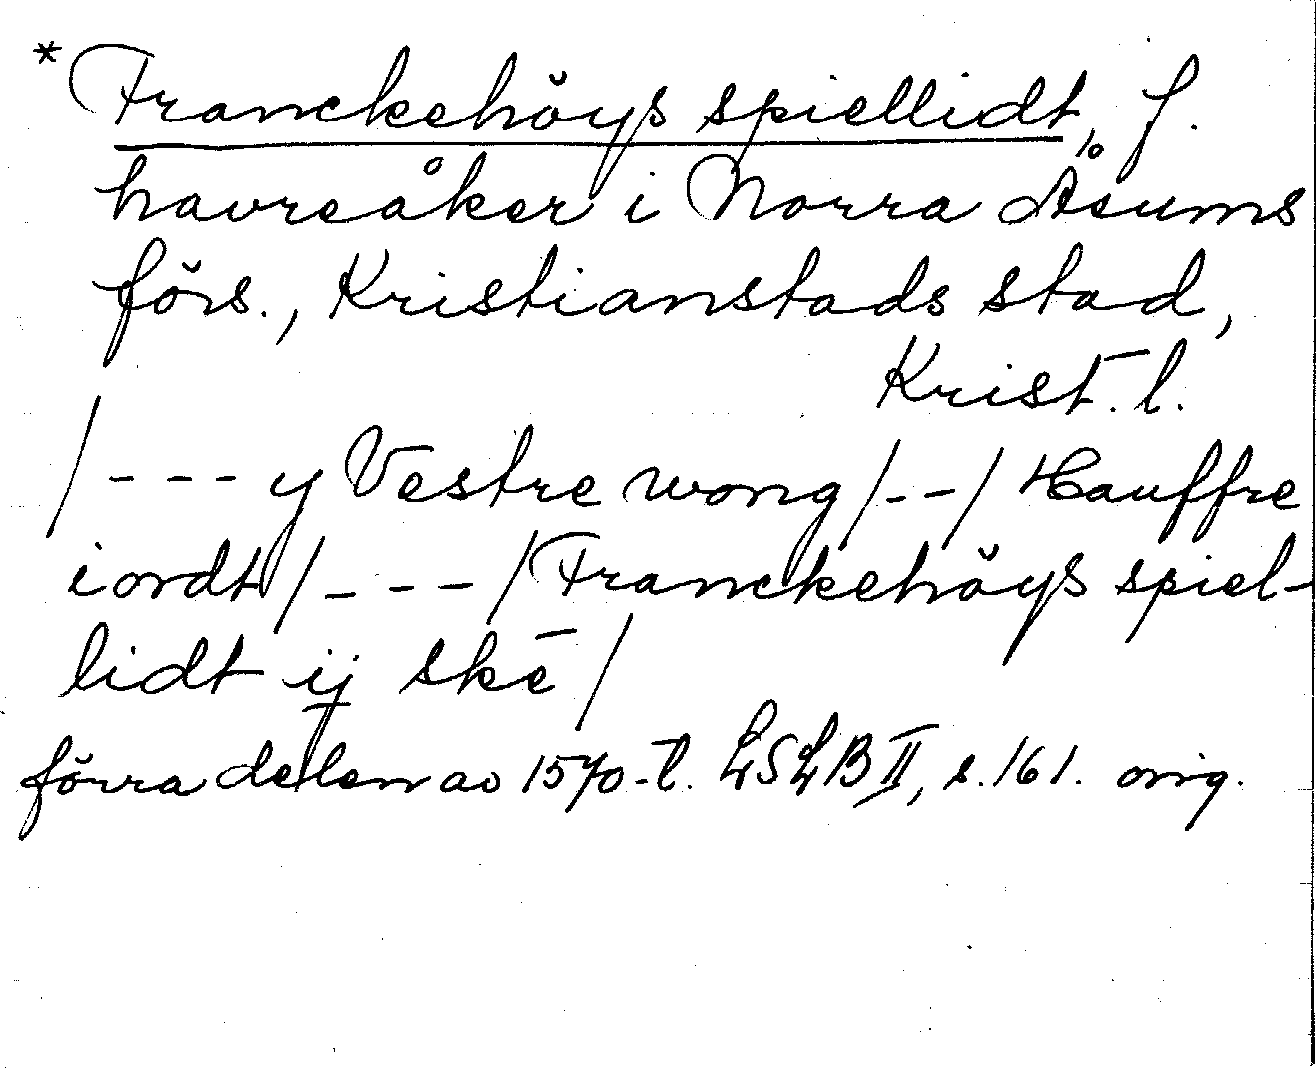 *Franckehöys spiellidt, f.
havreåker i Norra Åsums
förs., Kristianstads stad,
Krist. l.
/--- y Vestre wong /--/ Hauffre
iordt /---/ Franckehöys spiel-
lidt ij skē /
förra delen av 1570-t. LSLB II, s. 161. orig.